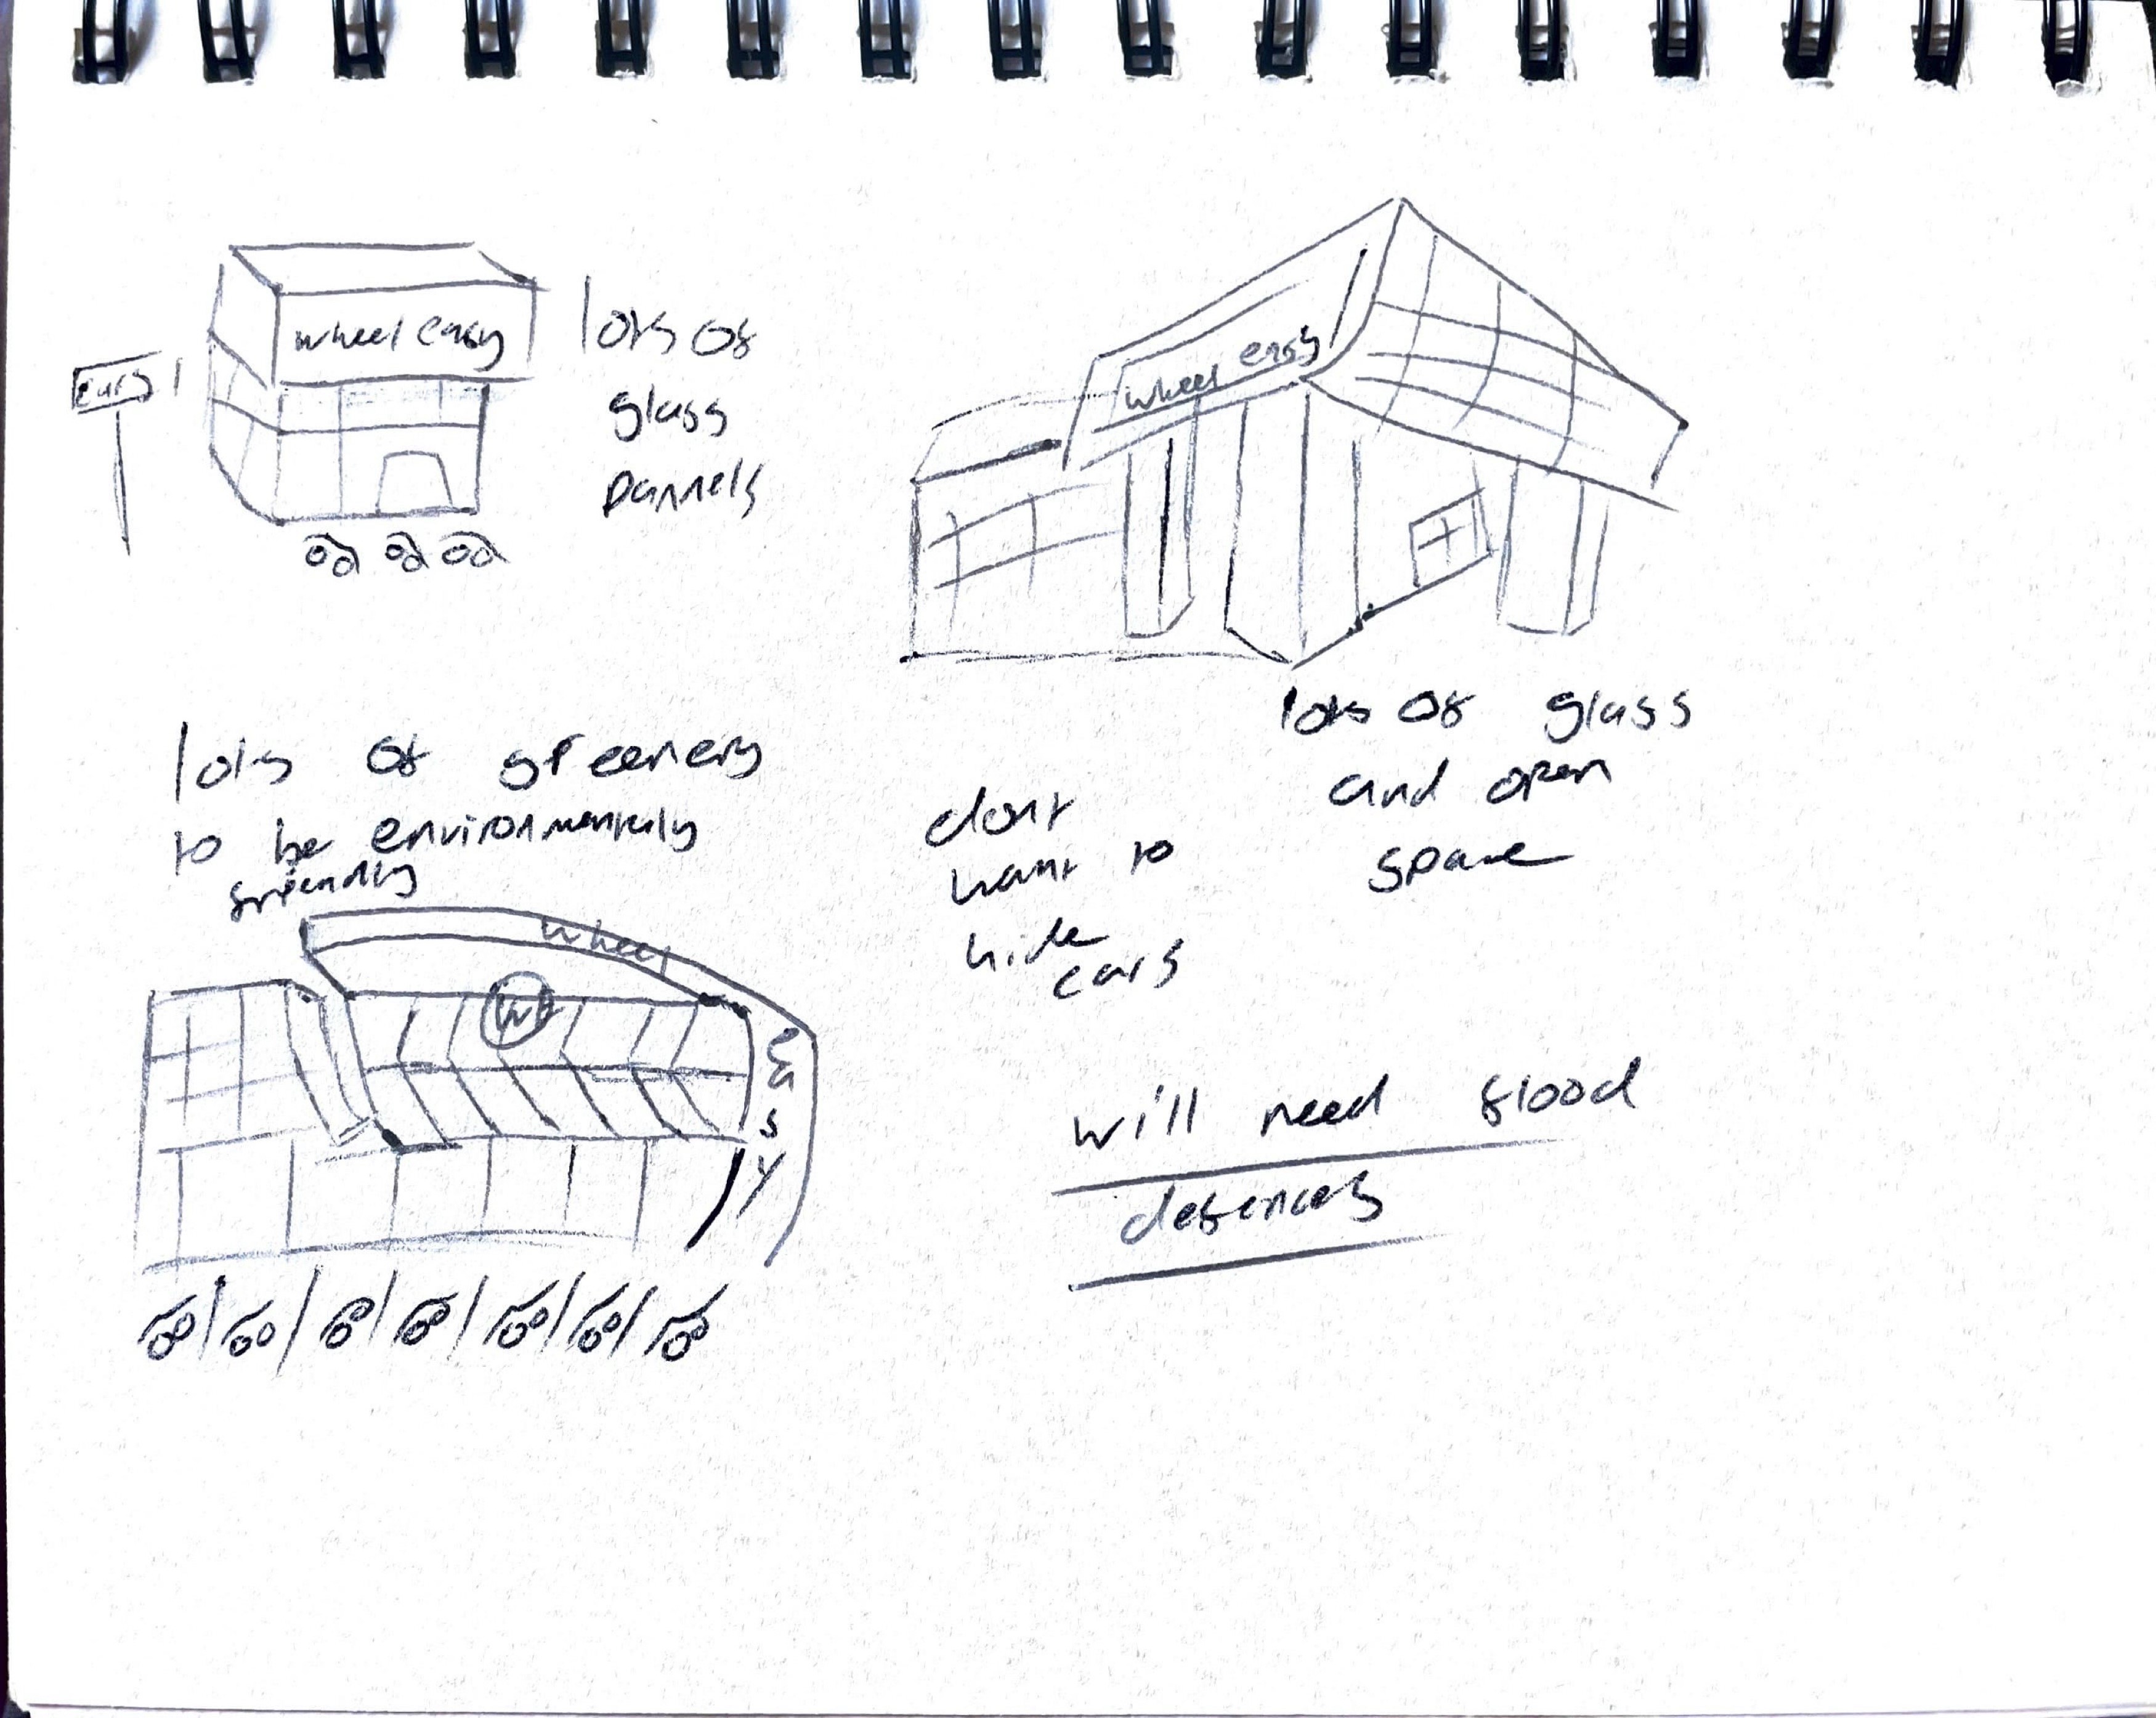 wheel easy
cars
lots of
glass
pannels
wheel easy
lots of greenery
to be environmentaly
friendly
lots of glass
and open
space
dont
want to
hide
cars
wheel
W
e
a
s
y
will need flood
defences